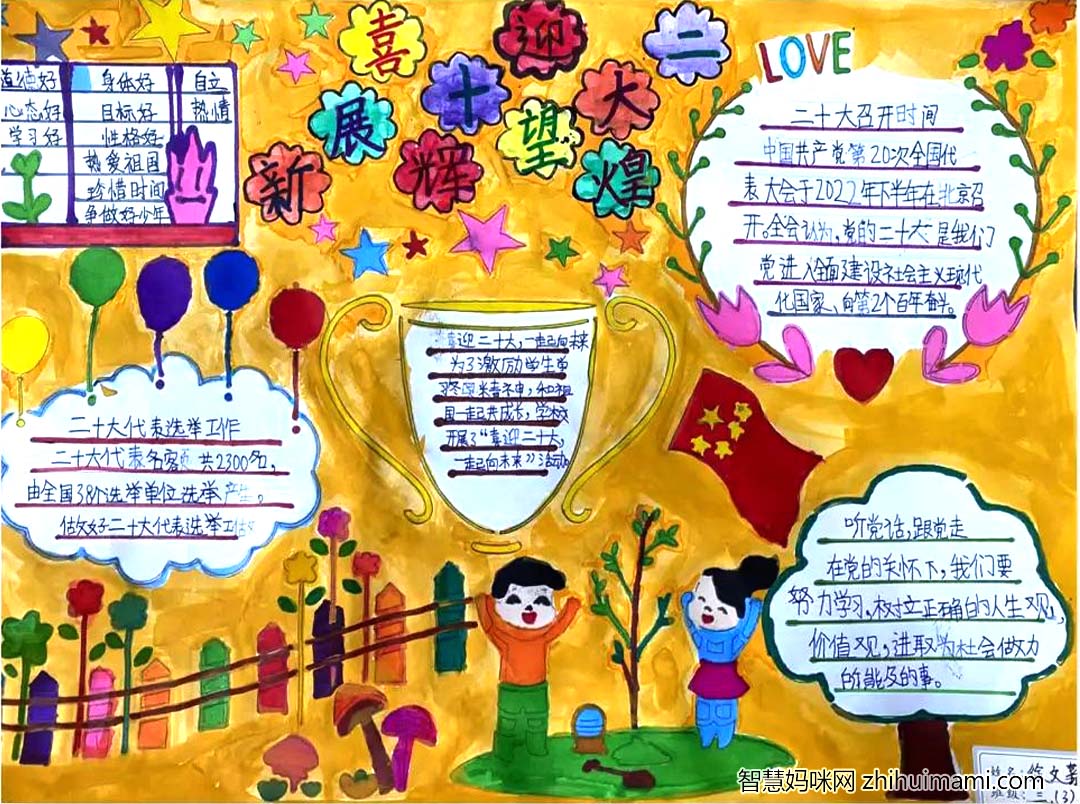 喜迎二
十大
展望
新辉煌
LOVE
道德好 身体好 自立
心态好 目标好 热情
学习好 性格好
热爱祖国
珍惜时间
争做好少年
二十大召开时间
中国共产党第20次全国代
表大会于2022年下半年在北京召
开。全会认为,党的二十大是我们
党进入全面建设社会主义现代
化国家、向第2个百年奋斗。
喜迎二十大,一起向未来
为了激励学生单
精神,和祖
国一起共成长,学校
开展了“喜迎二十大,
一起向未来”活动
二十大代表选举工作
二十大代表名额共2300名,
由全国38个选举单位选举产生,
做好二十大代表选举工作
听党话,跟党走
在党的关怀下,我们要
努力学习、树立正确的人生观,
价值观,进取为社会做力
所能及的事。
姓名:徐文
班级:二(3)
智慧妈咪网 zhihuimami.com